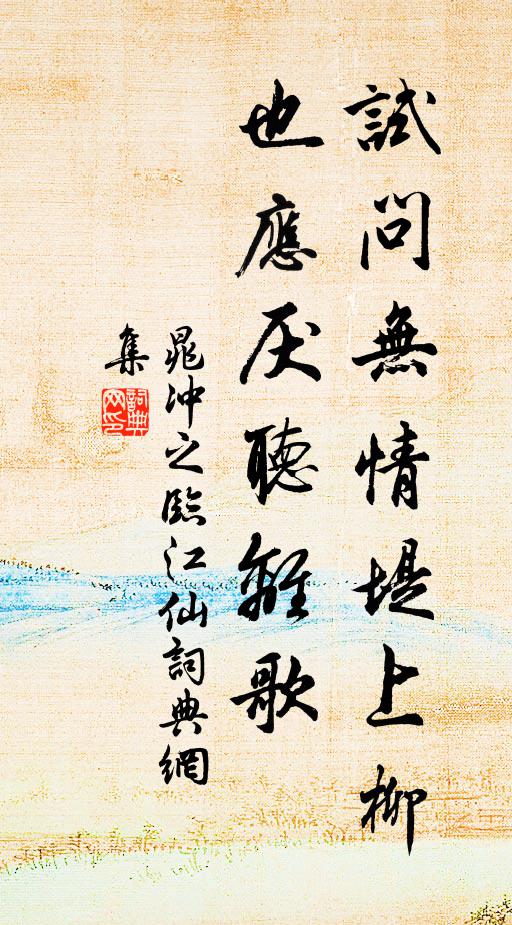 試問無情堤上柳
也應厌聽離歌
晁冲之臨江仙詞典網
集
詞典
网印